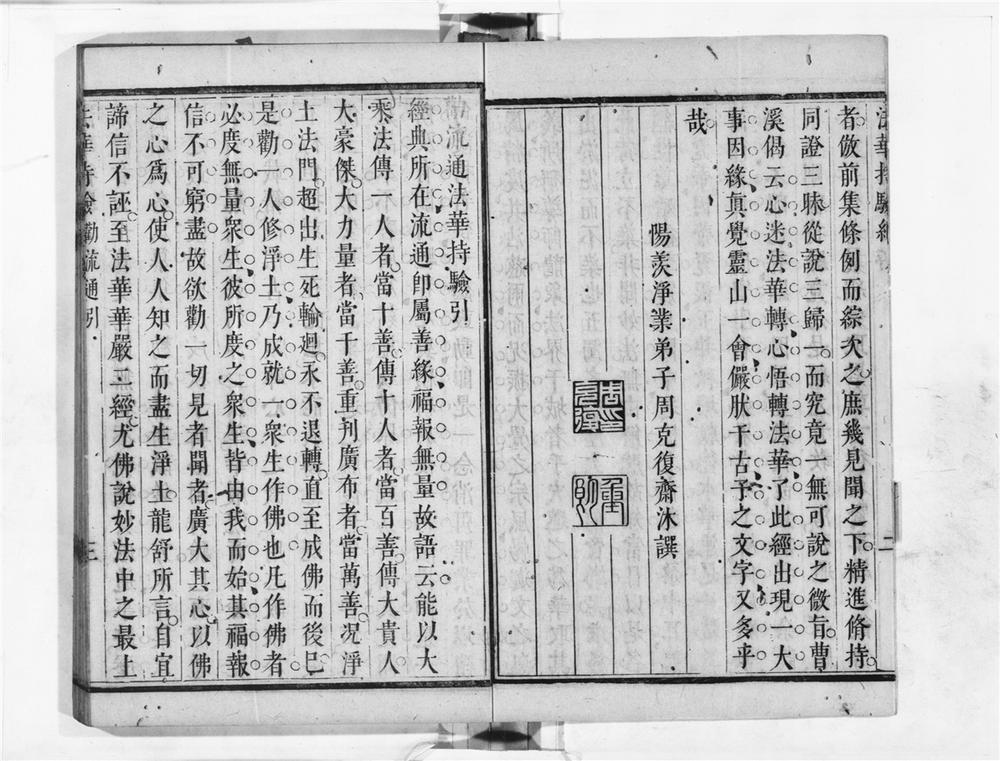 法華持驗紀序
二
者倣前集條例而綜次之庶幾見聞之下精進脩持
同證三昧從說三歸一而究竟一無可說之微旨曹
溪偈云心迷法華轉心悟轉法華了此經出現一大
事因緣眞覺靈山一會儼肰千古予之文字又多乎
哉
陽羨淨業弟子周克復齋沐譔
勸流通法華持驗引
經典所在流通卽屬善緣福報無量故語云能以大
乘法傳一人者當十善傳十人者當百善傳大貴人
大豪傑大力量者當千善重刊廣布者當萬善况淨
土法門超出生死輪廻永不退轉直至成佛而後已
是勸一人修淨土乃成就一衆生作佛也凡作佛者
必度無量衆生彼所度之衆生皆由我而始其福報
信不可窮盡故欲勸一切見者聞者廣大其心以佛
之心爲心使人人知之而盡生淨土龍舒所言自宜
諦信不誣至法華華嚴二經尤佛說妙法中之最上
法華持驗勸流通引
三